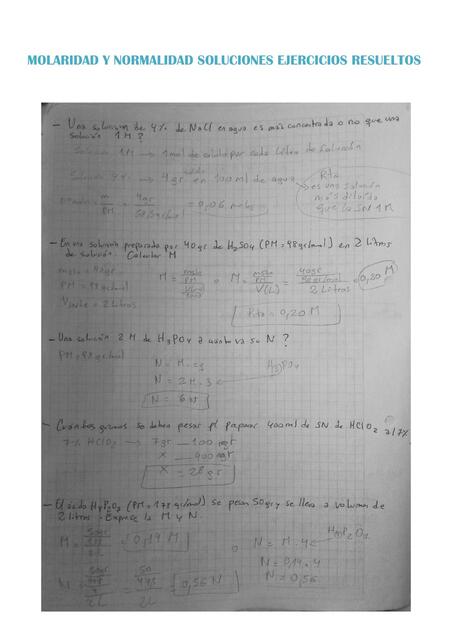 MOLARIDAD Y NORMALIDAD SOLUCIONES EJERCICIOS RESUELTOS
- Una solucion de 4% de NaCl en agua es más concentrada o no que una
solución 1M?
Solución 1M → 1 mol de soluto por cada litro de solución
Solución 4% → 4gr en 100 ml de agua
Rta
es una solución
más diluida
que la SN 1M
m/PM = 4gr = 0,06 moles
- En una solución preparada por 40gr de H2SO4 (PM=98gr/mol) en 2 litros
de solución. Calcular M
PM = 98gr/mol
2 Litros
M = V(L) = 2 Litros = 0,20 M
Rta = 0,20 M
- Una solución 2M de H3PO4 a cuánto va su N?
PM=98gr/mol
N = M · 3
H3PO4
N = 2M · 3
N = 6N
- Cuántos gramos se deben pesar p/ preparar 400ml de SN de HClO2 al 7%
7% HClO2 → 7gr — 100
x — 400
x = 28gr
- El ácido H4P2O7 (PM=178gr/mol) se pesan 50gr y se lleva a volumen de
2 litros. Exprese la M y N.
M = = 0,14 M
o N = M · 4
H4P2O7
N = 0,14 · 4
N = 2L = 0,56 N
N = 0,56